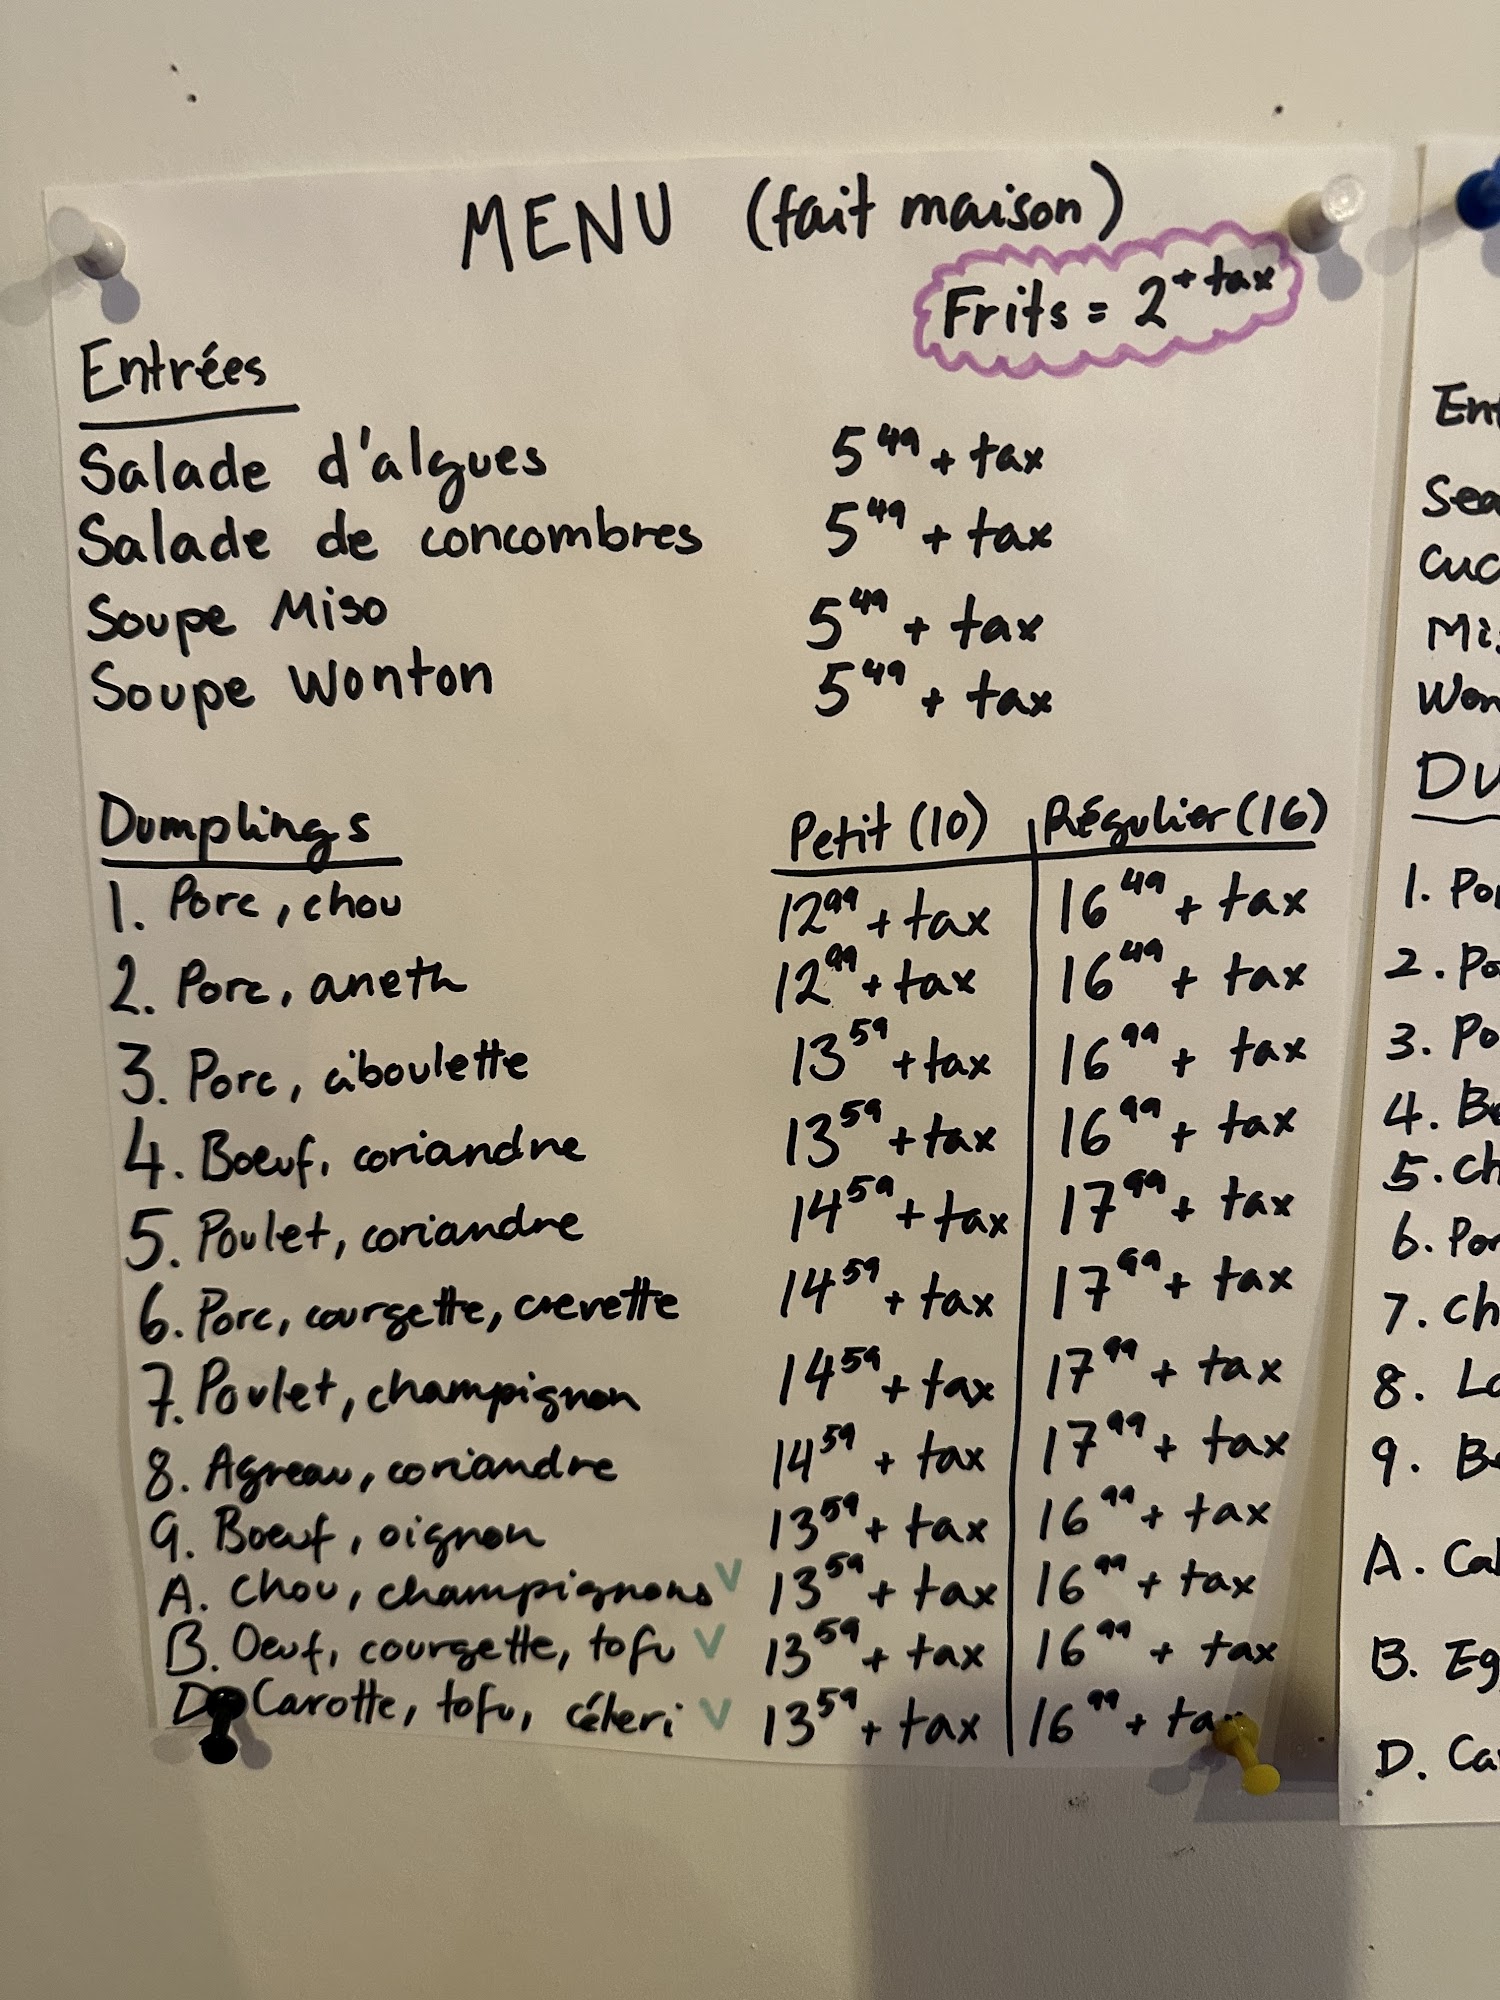 MENU (fait maison)
Frits = 2 + tax
Entrées
Salade d'algues 5 49 + tax
Salade de concombres 5 49 + tax
Soupe Miso 5 49 + tax
Soupe Wonton 5 49 + tax
Dumplings Petit (10) Régulier (16)
1. Porc, chou 12 99 + tax 16 49 + tax
2. Porc, aneth 12 99 + tax 16 49 + tax
3. Porc, ciboulette 13 59 + tax 16 99 + tax
4. Boeuf, coriandre 13 59 + tax 16 99 + tax
5. Poulet, coriandre 14 59 + tax 17 99 + tax
6. Porc, courgette, crevette 14 59 + tax 17 99 + tax
7. Poulet, champignon 14 59 + tax 17 99 + tax
8. Agneau, coriandre 14 59 + tax 17 99 + tax
9. Boeuf, oignon 13 59 + tax 16 99 + tax
A. Chou, champignons V 13 59 + tax 16 99 + tax
B. Oeuf, courgette, tofu V 13 59 + tax 16 99 + tax
D. Carotte, tofu, céleri V 13 59 + tax 16 99 + tax
1.
2.
3.
4.
5.
6.
7.
8.
9.
A.
B.
D.